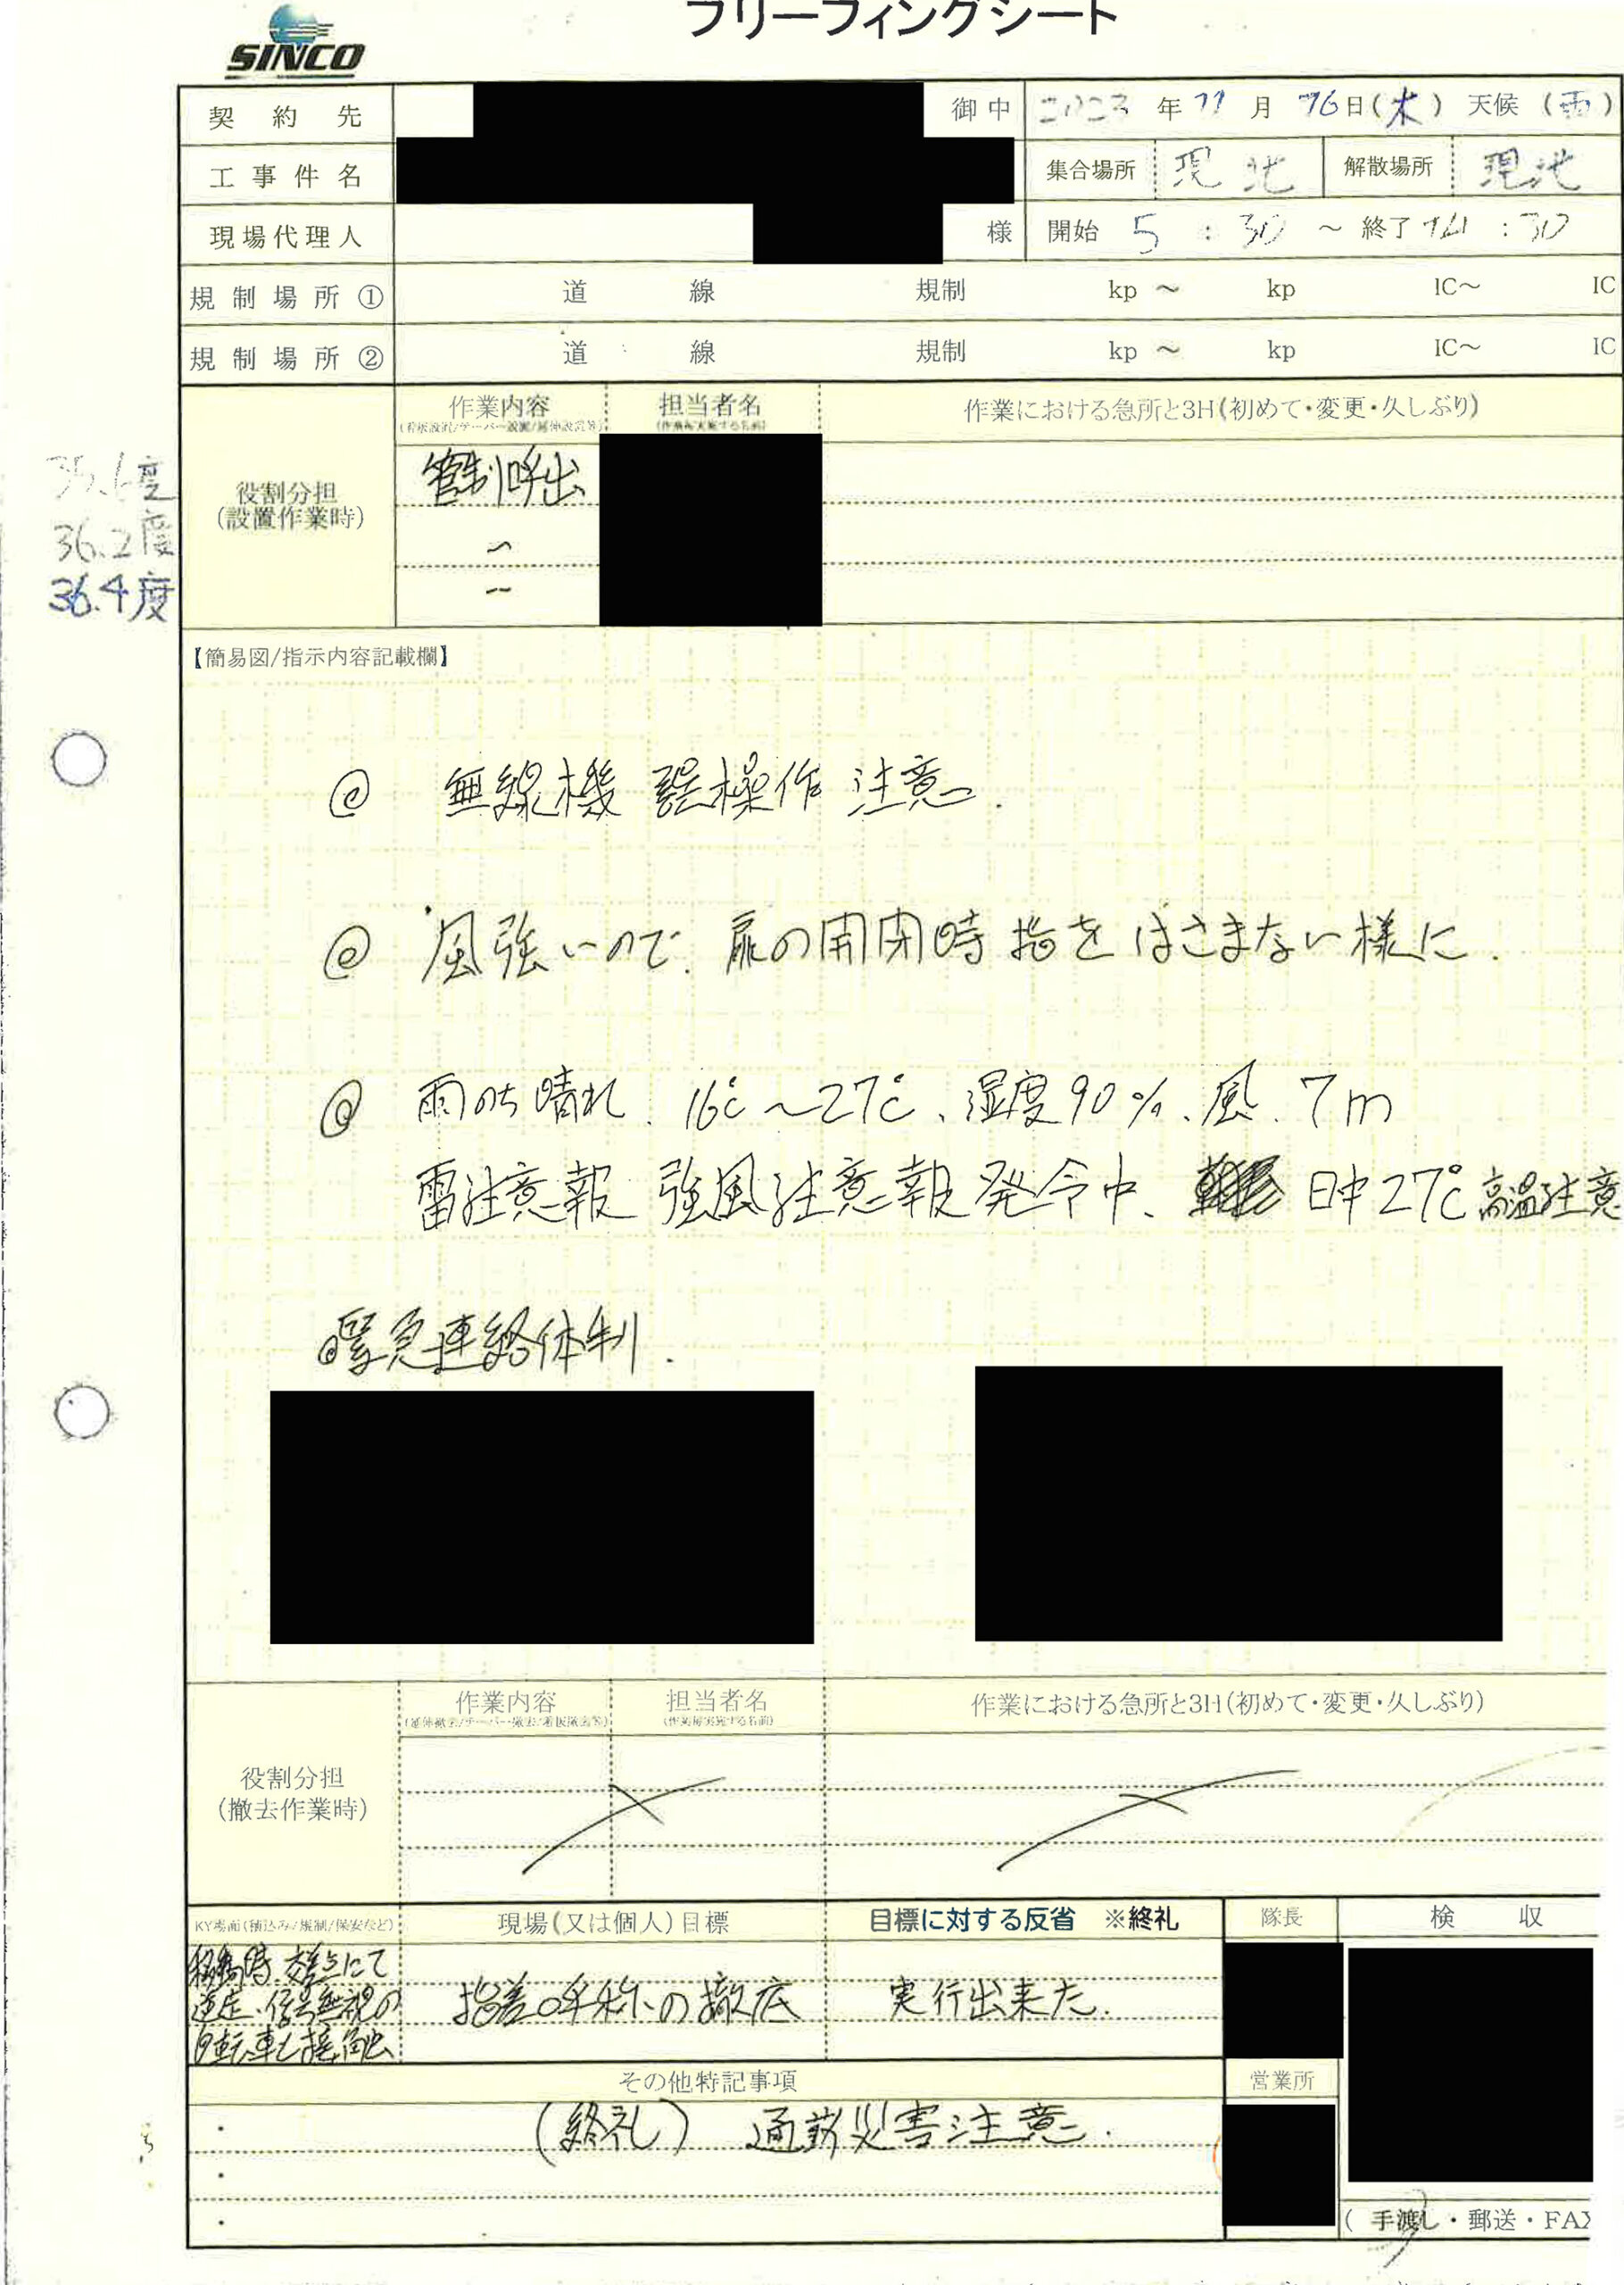 ブリーフィングシート
SINCO
契約先 御中 2023年11月16日(木) 天候(雨)
工事件名 集合場所 現地 解散場所 現地
現場代理人 様 開始 5:30 ~ 終了 14:30
規制場所① 道 線 規制 kp ~ kp IC~ IC
規制場所② 道 線 規制 kp ~ kp IC~ IC
作業内容 担当者名 作業における急所と3H(初めて・変更・久しぶり)
(作業を実施する名前)
役割分担
(設置作業時)
管制呼出
〜
〜
度
36.2度
36.4度
【簡易図/指示内容記載欄】
@ 無線機 誤操作 注意.
@ 風強いので、扉の開閉時指をはさまない様に.
@ 雨のち晴れ、16℃〜27℃、湿度90%、風、7m
雷注意報 強風注意報発令中、日中27℃高温注意
緊急連絡体制.
作業内容 担当者名 作業における急所と3H(初めて・変更・久しぶり)
(作業を実施する名前)
役割分担
(撤去作業時)
KY場面(積込み/規制/保安など) 現場(又は個人)目標 目標に対する反省 ※終礼 隊長 検収
移動時 交差点にて
逆走・信号無視の 指差呼称の徹底 実行出来た.
自転車と接触
その他特記事項 営業所
・ (終礼) 通勤災害注意.
・
・
(手渡し・郵送・FAX